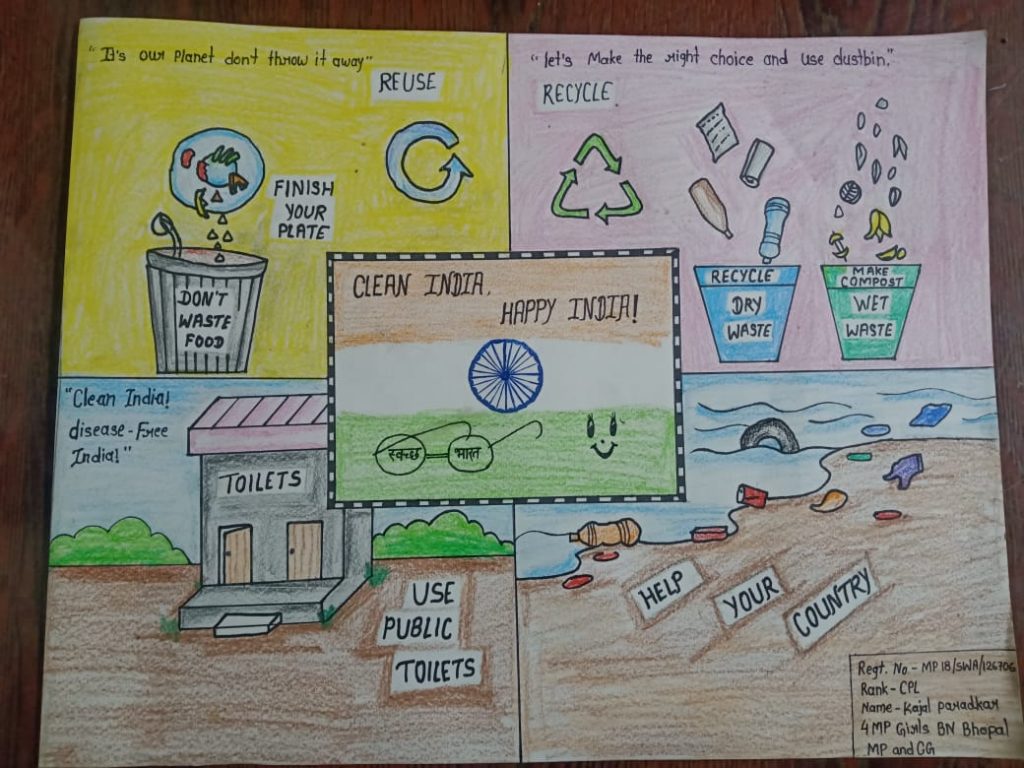 "It's our planet don't throw it away"
REUSE
FINISH
YOUR
PLATE
DON'T
WASTE
FOOD
"let's Make the right choice and use dustbin."
RECYCLE
RECYCLE
DRY
WASTE
MAKE
COMPOST
WET
WASTE
CLEAN INDIA,
HAPPY INDIA!
स्वच्छ भारत
"Clean India!
disease-Free
India!"
TOILETS
USE
PUBLIC
TOILETS
HELP YOUR COUNTRY
Regt. No.- MP18/SWA/126706
Rank- CPL
Name- Kajal Paradkar
4 MP Girls BN Bhopal
MP and CG